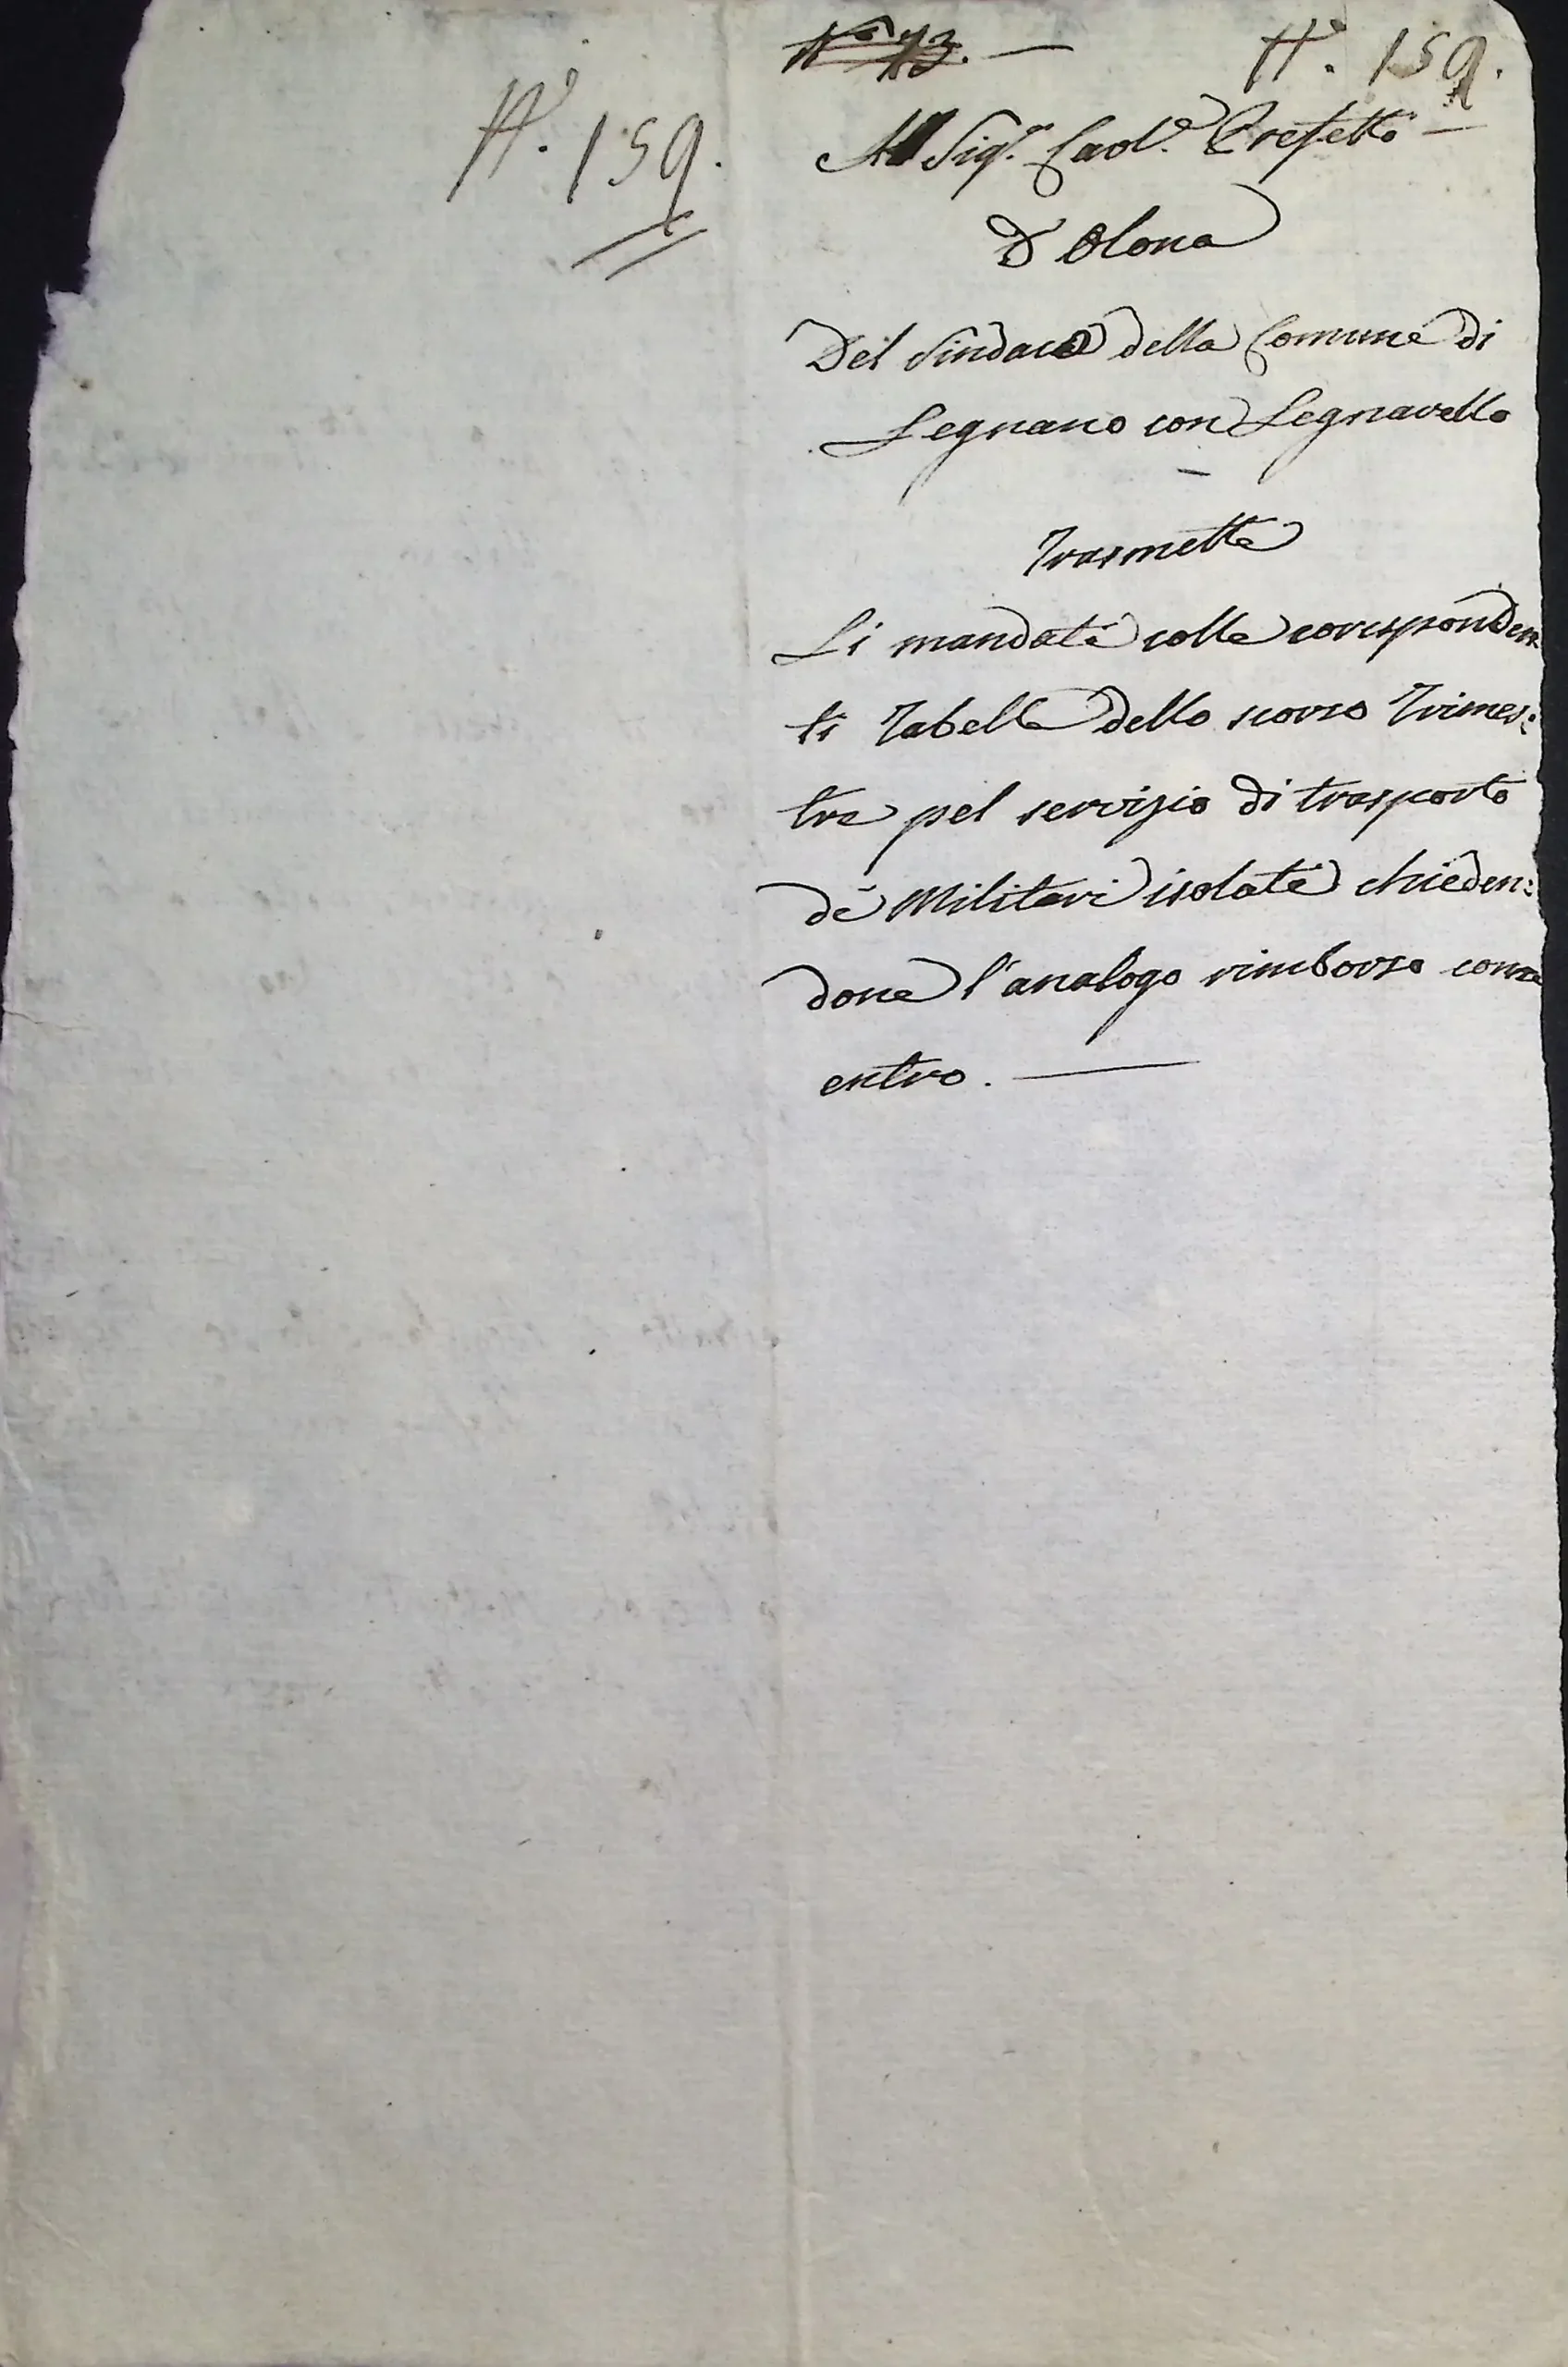 N.° 159.
N.° 73. —
N.° 159.
Al Sig.r Cav.e Prefetto —
D'Olona
Del Sindaco della Comune di
Legnano con Legnarello
—
Trasmette
Li mandati colle corisponden
ti Tabelle dello scorso Trimes:
tre pel servizio di trasporto
de Militari isolati chieden:
done l'analogo rimborso come
entro. —